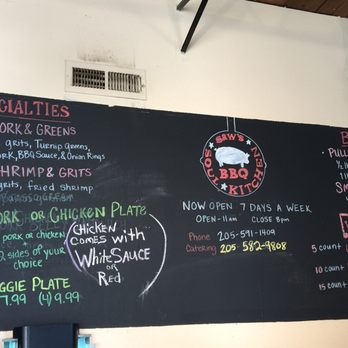 CIALTIES
ORK & GREENS
grits, Turnip Greens,
ORK, BBQ Sauce, & Onion Rings
SHRIMP & GRITS
grits, fried shrimp
ORK OR CHICKEN PLATE
pork or chicken
2 sides of your
choice
GGIE PLATE
7.99 (4) 9.99
CHICKEN
COMES with
White SAUCE
OR
Red
SAW'S
BBQ
SOUL KITCHEN
NOW OPEN 7 DAYS A WEEK
OPEN-11am CLOSE 8pm
Phone 205-591-1409
Catering 205 582-9808
B
PULL
SM
5 count
10 count
15 count